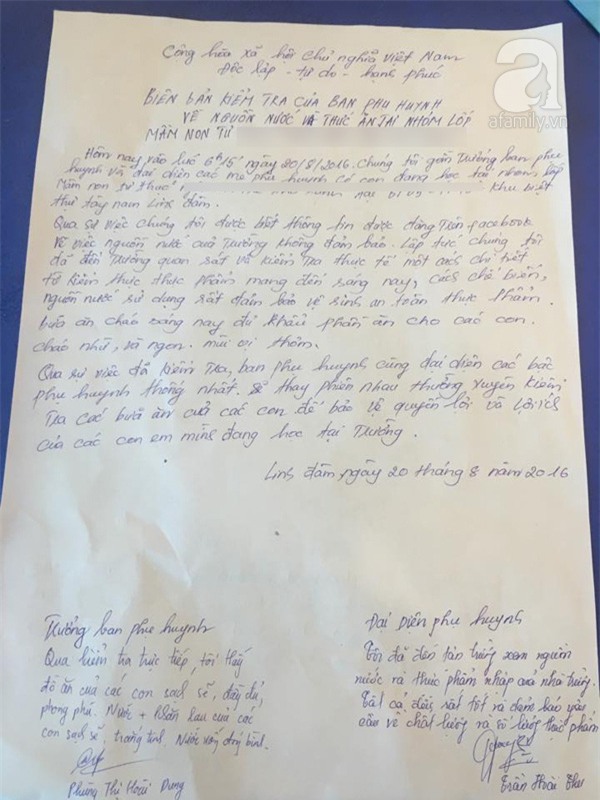 a
afamily.vn
Cộng hòa xã hội chủ nghĩa Việt Nam
Độc lập - tự do - hạnh phúc
BIÊN BẢN KIỂM TRA CỦA BAN PHỤ HUYNH
VỀ NGUỒN NƯỚC VÀ THỨC ĂN TẠI NHÓM LỚP
MẦM NON TƯ
Hôm nay vào lúc 6h15' ngày 20/8/2016. Chúng tôi gồm Trưởng ban phụ
huynh và đại diện các mẹ phụ huynh có con đang học tại nhóm lớp
Mầm non tư thục khu biệt
thự tây nam Linh đàm.
Qua sự việc chúng tôi được biết thông tin được đăng trên facebook
về việc nguồn nước của Trường không đảm bảo. Lập tức chúng tôi
đã đến Trường quan sát và kiểm tra thực tế một cách chi tiết
từ kiểm thực thực phẩm mang đến sáng nay, cách chế biến,
nguồn nước sử dụng rất đảm bảo vệ sinh an toàn thực phẩm.
bữa ăn cháo sáng nay đủ khẩu phần ăn cho các con.
cháo nhừ, và ngon. mùi vị thơm.
Qua sự việc đã kiểm tra, ban phụ huynh cùng đại diện các bậc
phụ huynh thống nhất. Sẽ thay phiên nhau thường xuyên kiểm
tra các bữa ăn của các con để bảo vệ quyền lợi và lợi ích
của các con em mình đang học tại Trường.
Linh đàm, ngày 20 tháng 8 năm 2016
Trưởng ban phụ huynh
Qua kiểm tra trực tiếp, tôi thấy
đồ ăn của các con sạch sẽ, đầy đủ,
phong phú. Nước + khăn lau của các
con sạch sẽ, trong tinh. Nước uống đóng bình.
Phùng Thị Hoài Dung
Đại Diện phụ huynh
Tôi đã đến tận trường xem nguồn
nước và thực phẩm nhập của nhà trường.
Tất cả đều rất tốt và đảm bảo yêu
cầu về chất lượng và số lượng thực phẩm
Trần Hoài Thu